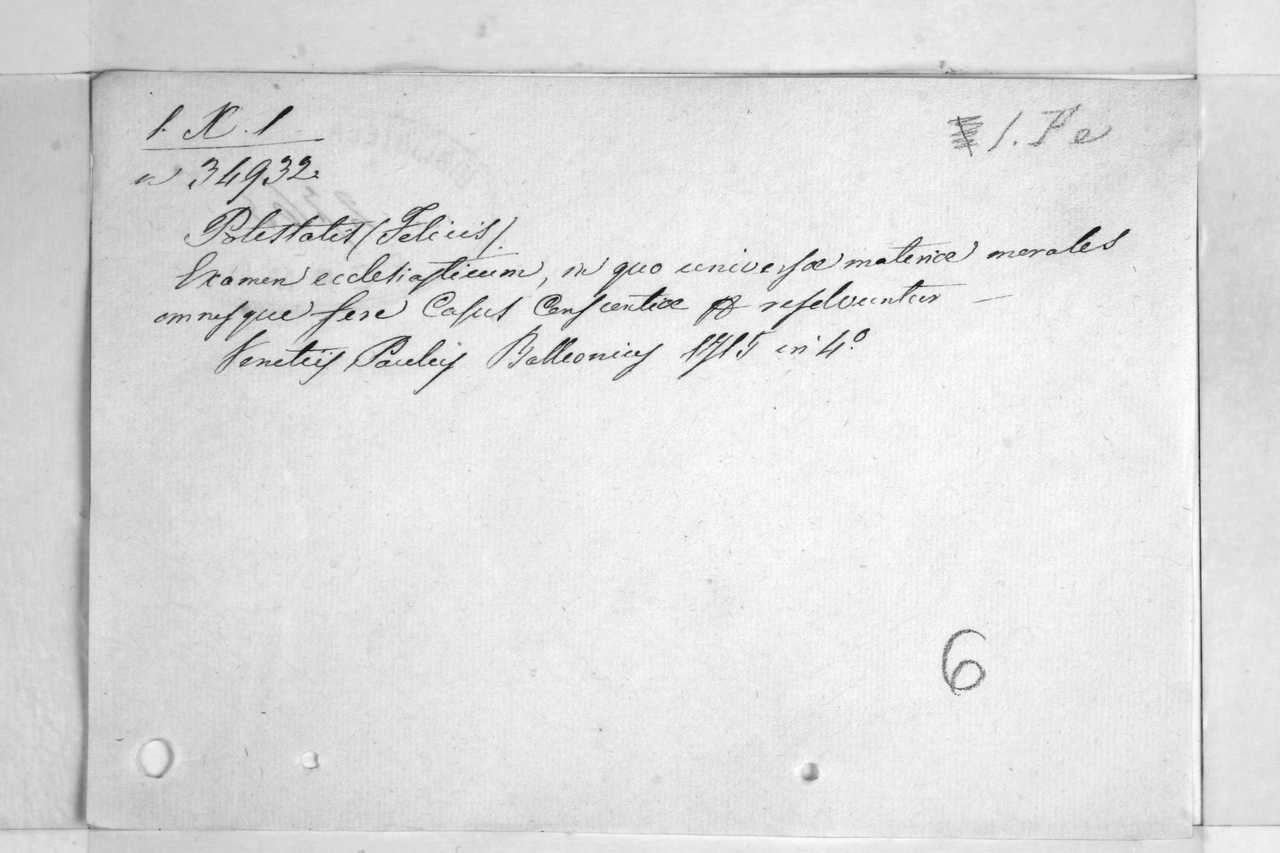 1. N. 1
1. P e
n 34932.
Potestatis (Felicis)
Examen ecclesiasticum, in quo universæ materiæ morales
omnesque fere Casus Conscientiæ resolvuntur —
Venetiis Paulis Balleonius 1715 in 4º
6